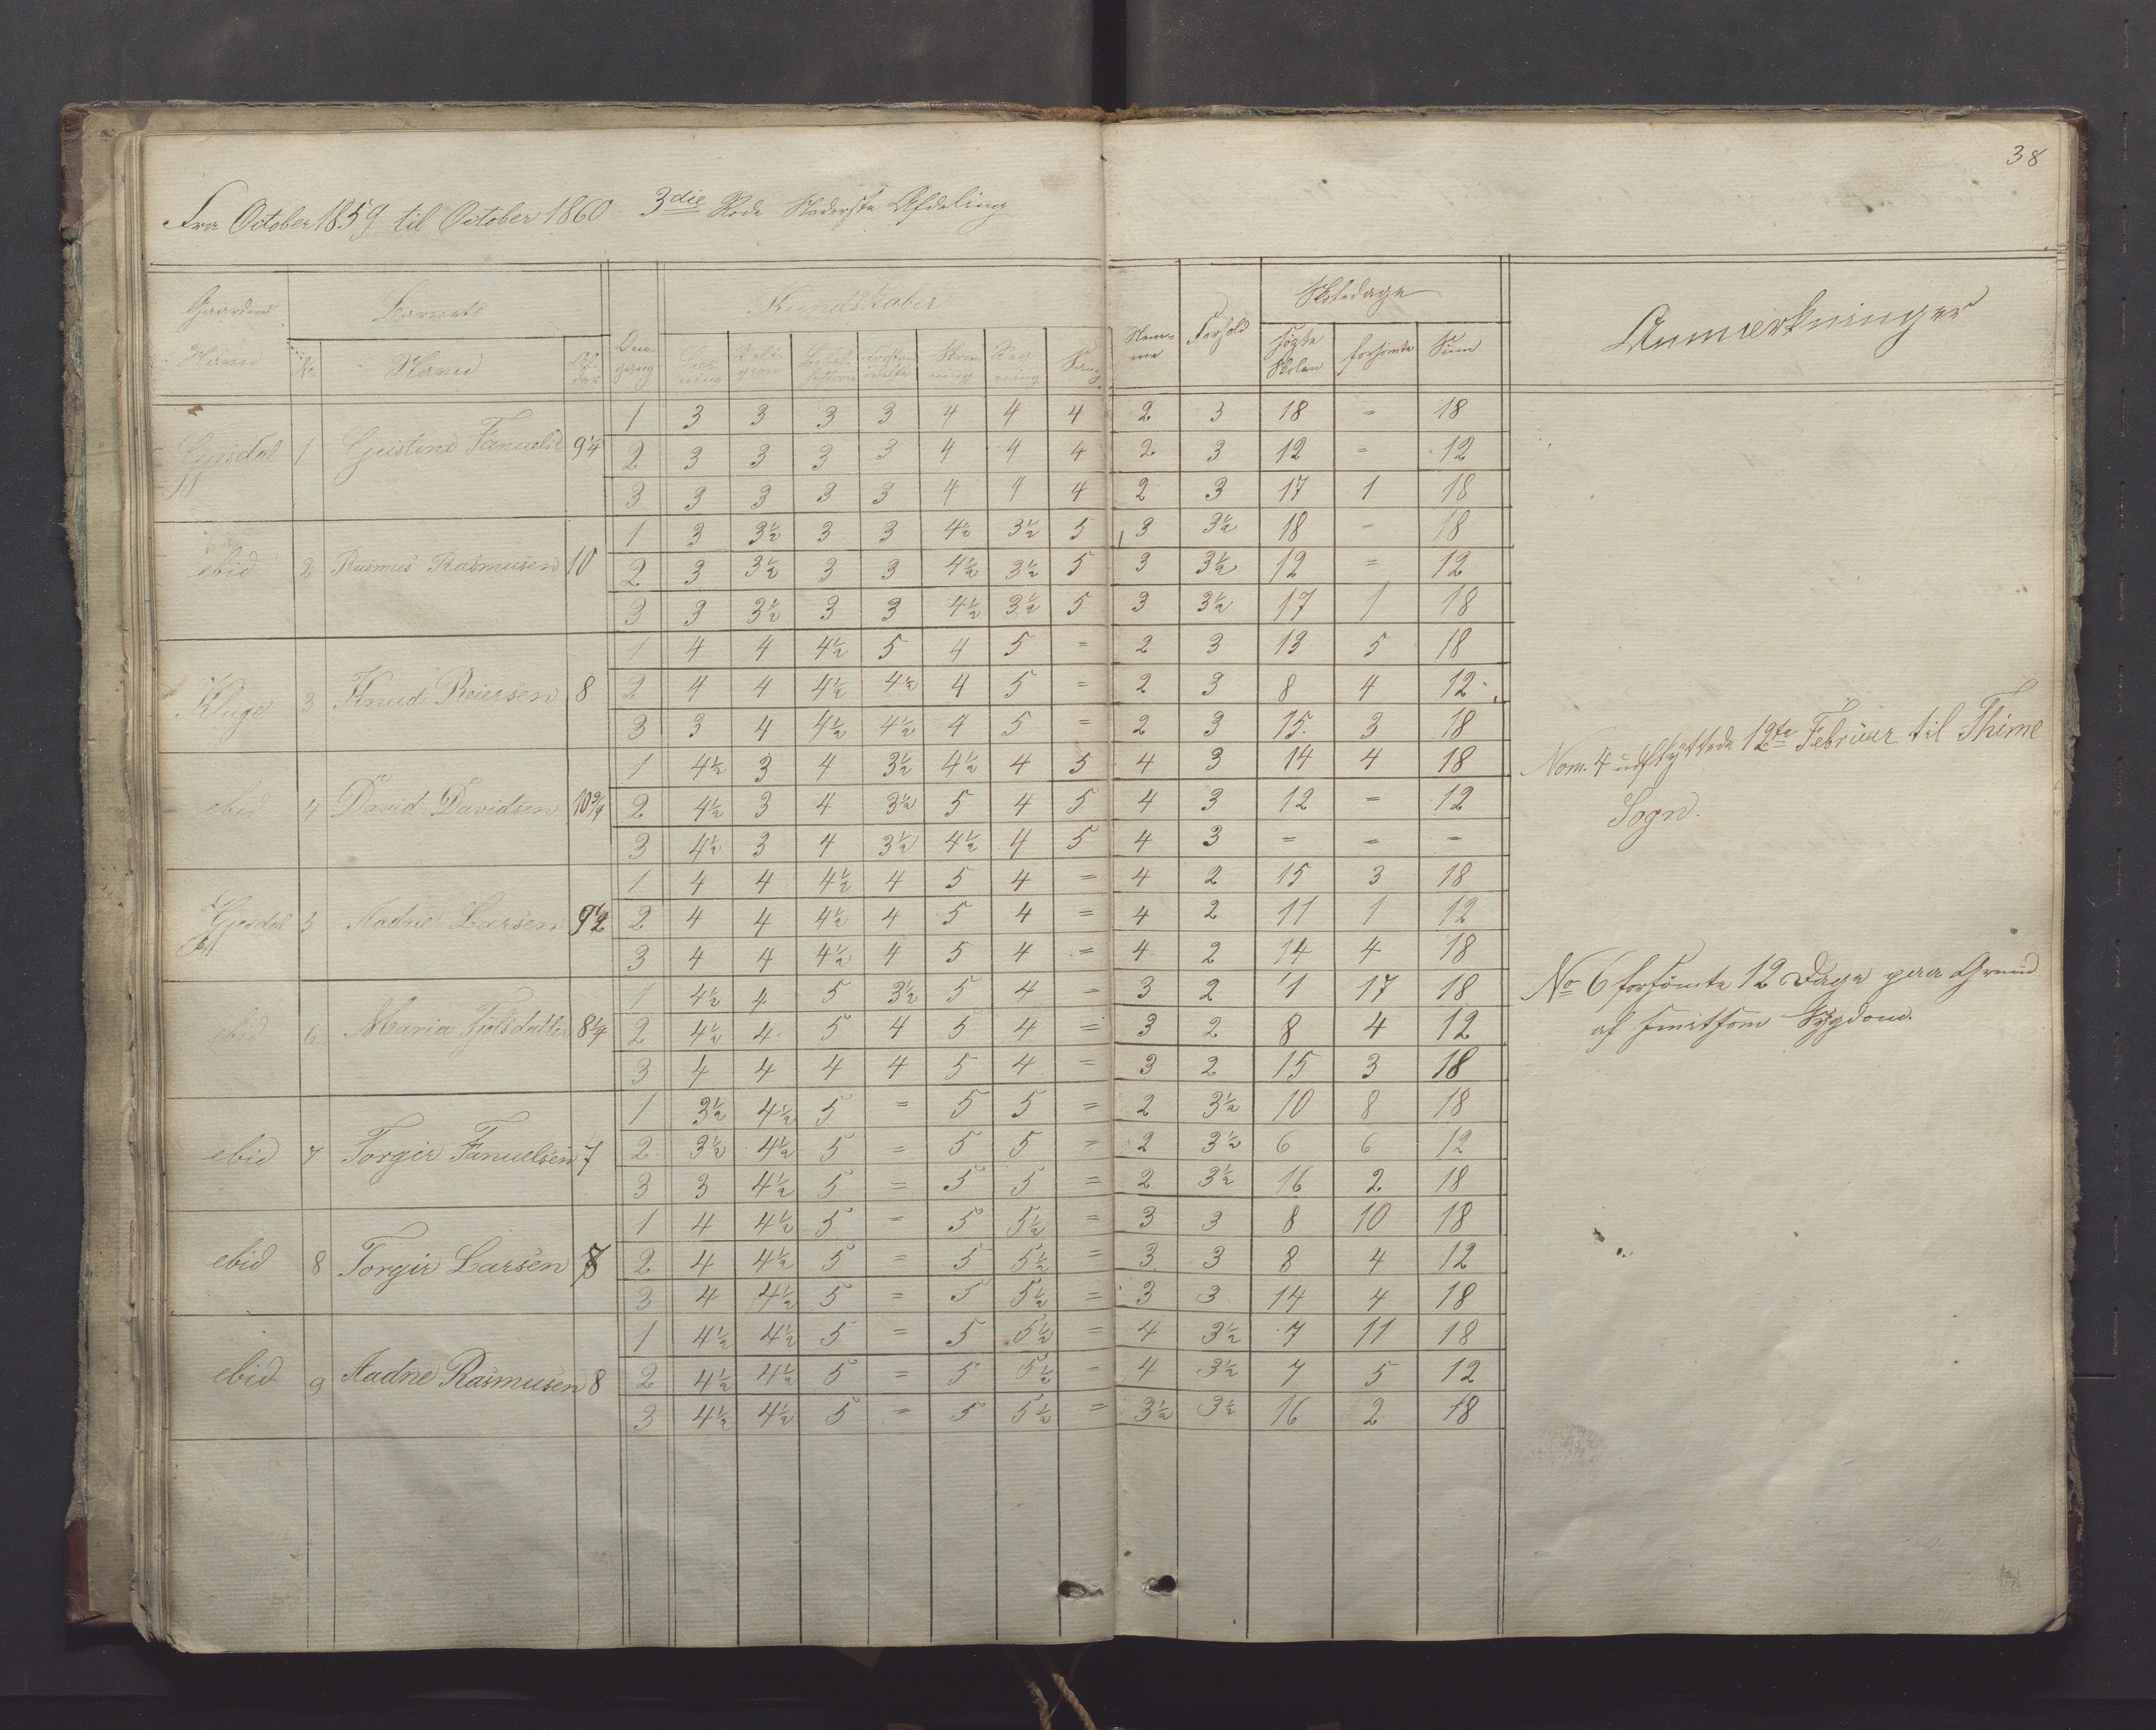 38
Fra October 1859 til October 1860 3die Rode Nederste Afdeling
Gaardens Barnets Kundskaber Skoledage
Navn No Navn Al-der Om-gang Læs-ning Reli-gion Bibel-historie Skriv-ning Reg-ning Sang Nem-me Forhold søgte Skolen forsømte Sum Anmærkninger
1 3 3 3 3 4 4 4 2 3 18 = 18
Gjesdal 1 Gustine Fanuelsd 9¼ 2 3 3 3 3 4 4 4 2 3 12 = 12
3 3 3 3 3 4 4 4 2 3 17 1 18
1 3 3½ 3 3 4½ 3½ 5 3 3½ 18 = 18
ebid 2 Rasmus Rasmusen 10 2 3 3½ 3 3 4½ 3½ 5 3 3½ 12 = 12
3 3 3½ 3 3 4½ 3½ 5 3 3½ 17 1 18
1 4 4 4½ 5 4 5 = 2 3 13 5 18
Kluge 3 Knud Reiersen 8 2 4 4 4½ 4½ 4 5 = 2 3 8 4 12
3 3 4 4½ 4½ 4 5 = 2 3 15 3 18
1 4½ 3 4 3½ 4½ 4 5 4 3 14 4 18 Nom. 4 udflyttede 12te Februar til Thime
ebid 4 David Davidsen 10¾ 2 4½ 3 4 3½ 5 4 5 4 3 12 = 12 Sogn.
3 4½ 3 4 3½ 4½ 4 5 4 3 = = =
1 4 4 4½ 4 5 4 = 4 2 15 3 18
Gjesdal 5 Aadne Larsen 9½ 2 4 4 4½ 4 5 4 = 4 2 11 1 12
3 4 4 4½ 4 5 4 = 4 2 14 4 18
1 4½ 4 5 3½ 5 4 = 3 2 1 17 18 No 6 forsömte 12 Dage paa Grund
ebid 6 Maria Fjolsdatter 8¼ 2 4½ 4 5 4 5 4 = 3 2 8 4 12 af smitsom Sygdom.
3 4 4 4 4 5 4 = 3 2 15 3 18
1 3½ 4½ 5 = 5 5 = 2 3½ 10 8 18
ebid 7 Torger Fanuelsen 7 2 3½ 4½ 5 = 5 5 = 2 3½ 6 6 12
3 3 4½ 5 = 5 5 = 2 3½ 16 2 18
1 4 4½ 5 = 5 5½ = 3 3 8 10 18
ebid 8 Torger Larsen 2 4 4½ 5 = 5 5½ = 3 3 8 4 12
3 4 4½ 5 = 5 5½ = 3 3 14 4 18
1 4½ 4½ 5 = 5 5½ = 4 3½ 7 11 18
ebid 9 Aadne Rasmusen 8 2 4½ 4½ 5 = 5 5½ = 4 3½ 7 5 12
3 4½ 4½ 5 = 5 5½ = 3½ 3½ 16 2 18